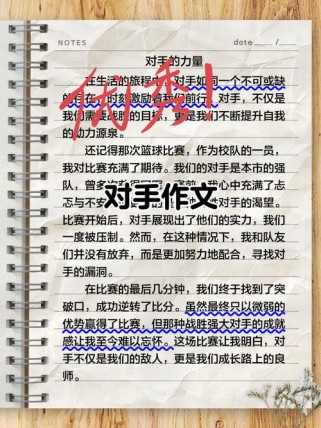 NOTES
date /
对手的力量
在生活的旅程中，对手如同一个不可或缺
的存在，时刻激励着我们前行。对手，不仅是
我们需要战胜的目标，更是我们不断提升自我
的动力源泉。
优秀！
还记得那次篮球比赛，作为校队的一员，
我对比赛充满了期待。我们的对手是本市的强
队，曾多次 心中充满了忐
对手作文
忑与不安 胜对手的渴望。
比赛开始后，对手展现出了他们的实力，我们
一度被压制。然而，在这种情况下，我和队友
们并没有放弃，而是更加努力地配合，寻找对
手的漏洞。
在比赛的最后几分钟，我们终于找到了突
破口，成功逆转了比分。虽然最终只以微弱的
优势赢得了比赛，但那种战胜强大对手的成就
感让我至今难以忘怀。这场比赛让我明白，对
手不仅是我们的敌人，更是我们成长路上的良
师。